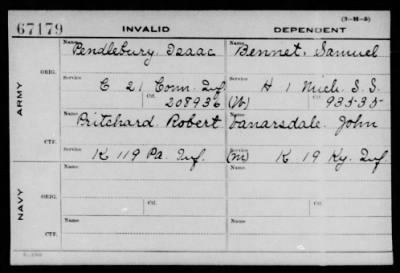 (3-M-5)
67179 INVALID DEPENDENT
Name Pendlebury, Isaac Name Bennet, Samuel
ORIG.
Service C 21 Conn. Inf. Service H 1 Mich. S. S.
Ctf. 208936 (W) Ctf. 93535
ARMY
Name Pritchard Robert Name Vanarsdale, John
CTF.
Service K 119 Pa. Inf. Service (M) K 19 Ky. Inf
Name Name
ORIG.
Service Service
Ctf. Ctf.
NAVY
Name Name
CTF.
Service Service